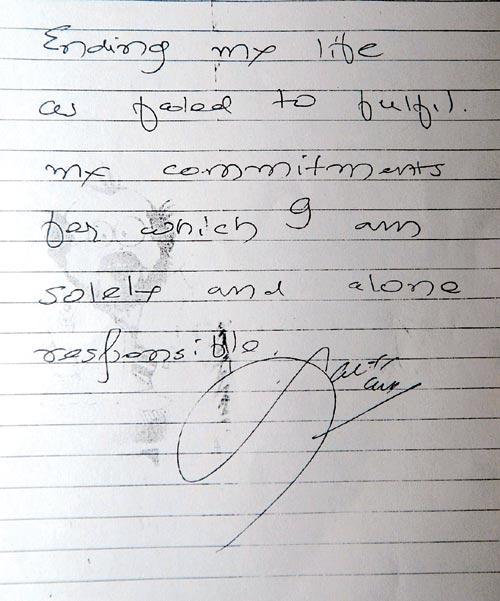 Ending my life
as failed to fulfil.
my commitments
for which I am
solely and alone
responsible.